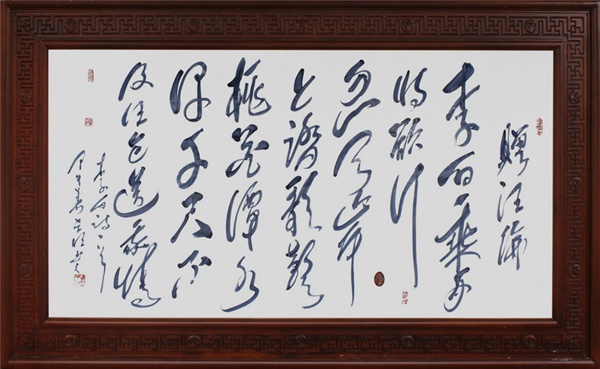 赠汪伦
李白乘舟
将欲行
忽闻岸
上踏歌声
桃花潭水
深千尺不
及汪伦送我情
李白诗一首